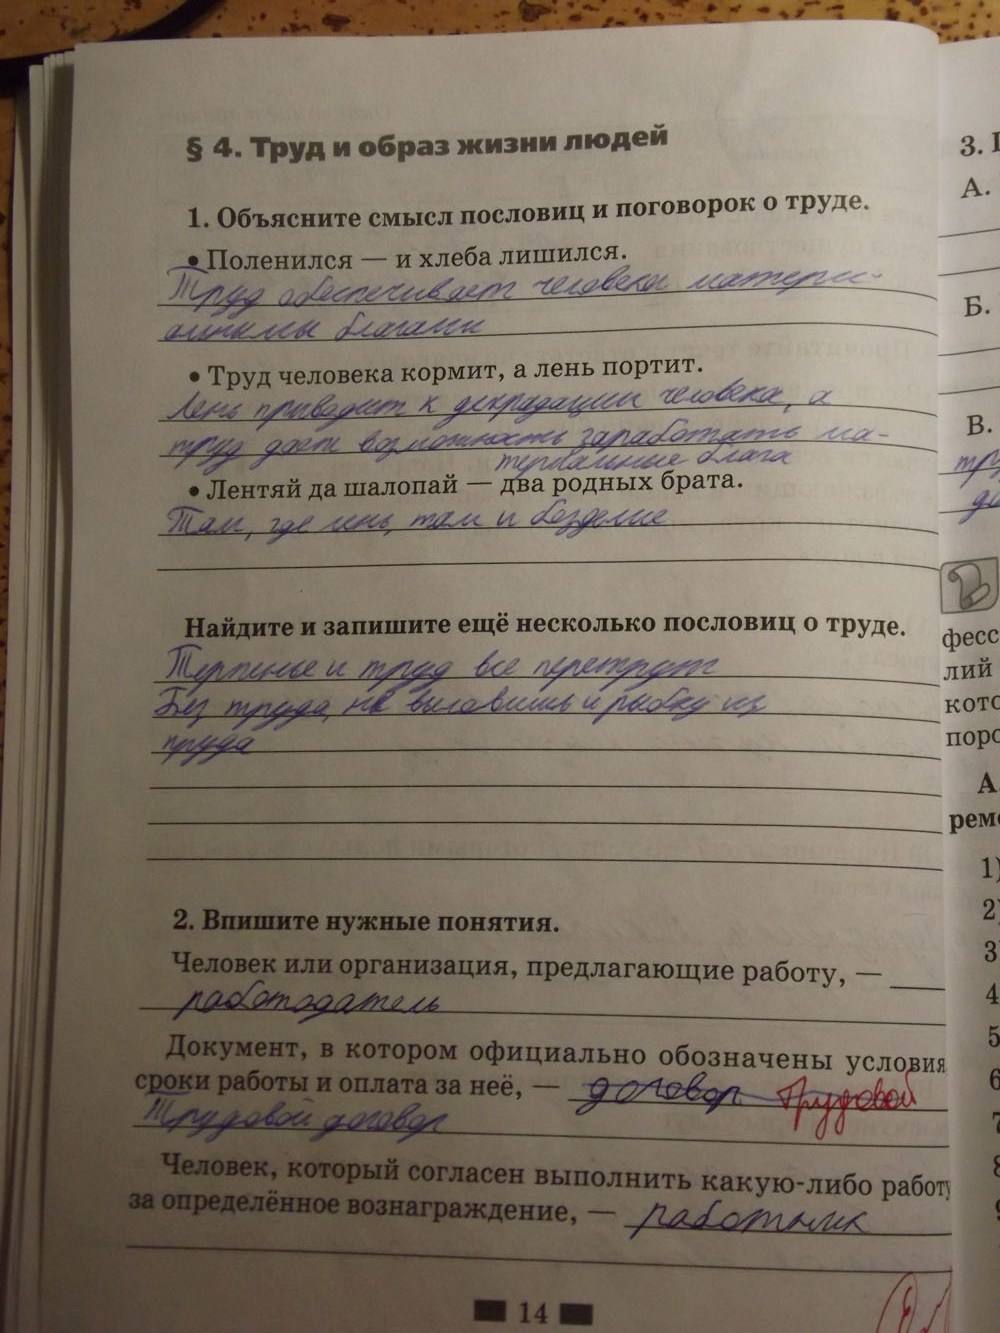 § 4. Труд и образ жизни людей
1. Объясните смысл пословиц и поговорок о труде.
• Поленился — и хлеба лишился.
Труд обеспечивает человека матери-
альными благами
• Труд человека кормит, а лень портит.
Лень приводит к деградации человека, а
труд дает возможность заработать ма-
териальные блага
• Лентяй да шалопай — два родных брата.
Там, где лень, там и безделие
Найдите и запишите ещё несколько пословиц о труде.
Терпенье и труд все перетрут
Без труда, не выловишь и рыбку из
пруда
2. Впишите нужные понятия.
Человек или организация, предлагающие работу, —
работодатель
Документ, в котором официально обозначены условия
сроки работы и оплата за неё, — договор Трудовой
Трудовой договор
Человек, который согласен выполнить какую-либо работу
за определённое вознаграждение, — работник
14
3.
А.
Б.
В.
тру
до
фесс
лий
кото
поро
А.
реме
1)
2)
3)
4
5
6
7
8
9